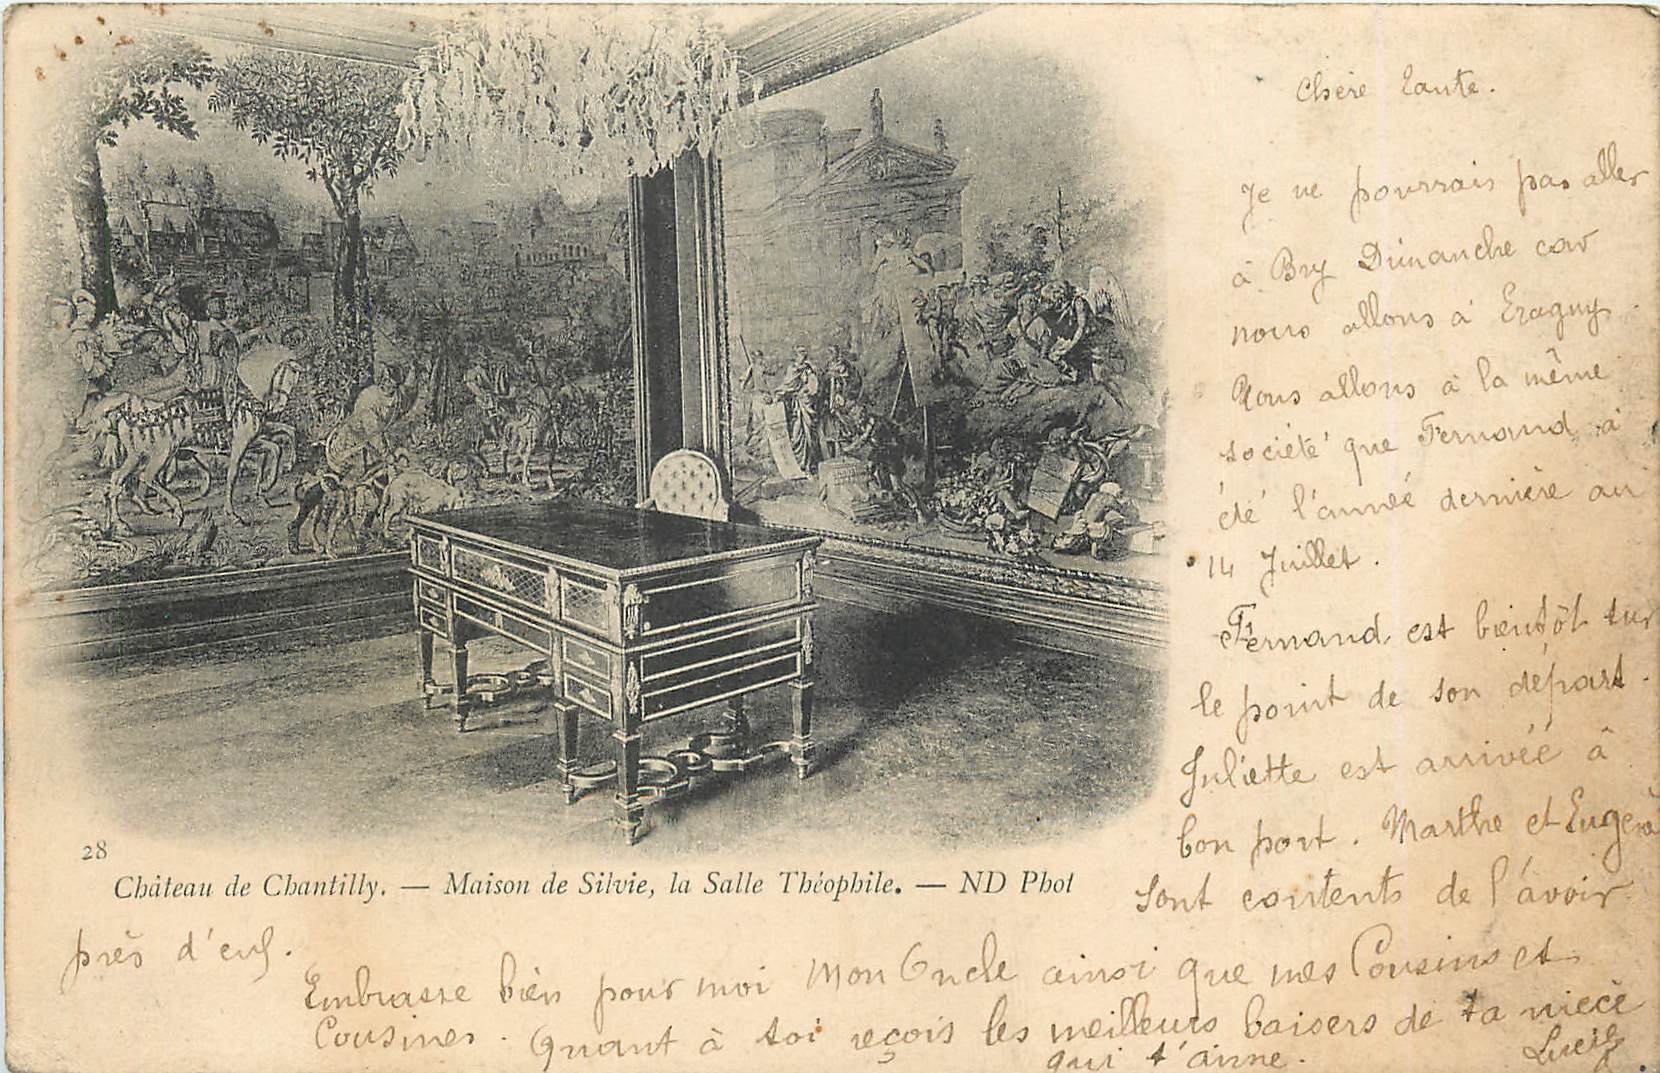 Chère Tante.
Je ne pourrais pas aller
à Bry Dimanche car
nous allons à Eragny.
Nous allons à la même
société que Fernand a
été l'année dernière au
14 Juillet.
Fernand est bientôt sur
le point de son départ.
Juliette est arrivée à
bon port. Marthe et
sont contents de l'avoir
28
Château de Chantilly. — Maison de Silvie, la Salle Théophile. — ND Phot
près d'eux.
Embrasse bien pour moi Mon Oncle ainsi que mes Cousins et
Cousines. Quant à toi reçois les meilleurs baisers de ta nièce
qui t'aime.
Lucie